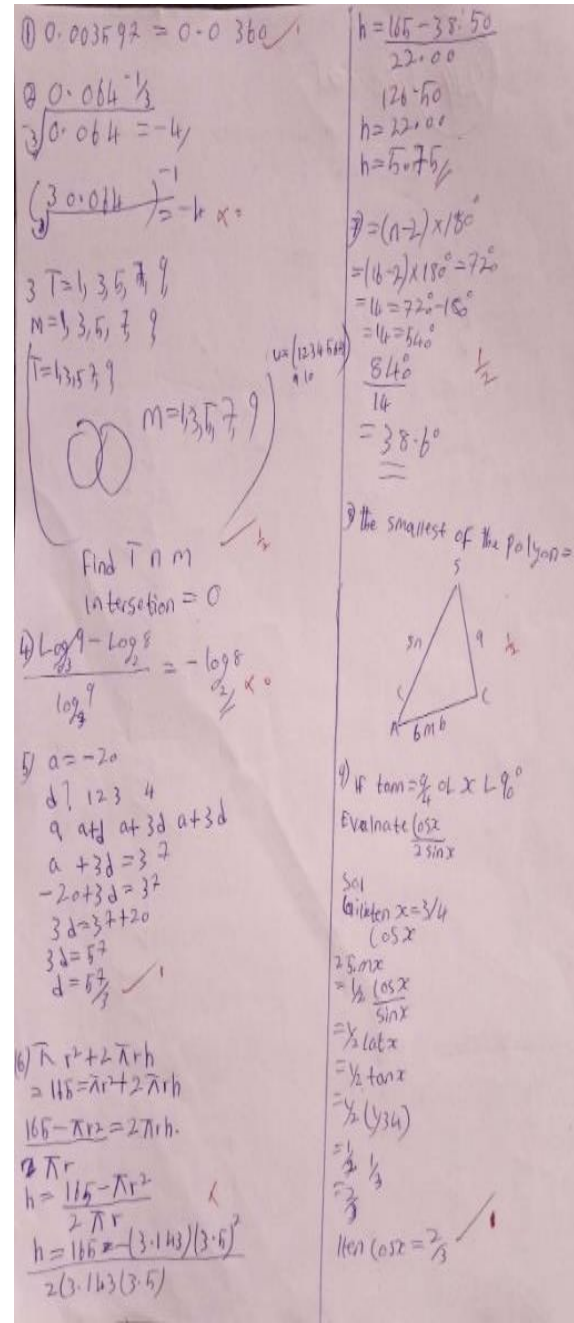 ① 0.003597 = 0.0 360
② 0.064^-1/3
3√0.064 = -4
(3 0.064)^-1 = -4 x 0
3 T=1, 3, 5, 7, 9,
M=1, 3, 5, 7, 9
T=1,3,5,7,9
M=1,3,5,7,9
9 10
1/2
Find T n m
intersetion = 0
4) Log3 9 - Log2 8
log3 9
= - log2 8 x 0
5) a = -20
d? 1 2 3 4
a a+d a+3d a+3d
a + 3d = 37
-20+3d = 37
3d = 37+20
3d = 57
d = 57/3 1
(6) π r²+2πrh
= 165 = πr²+2πrh
165 - πr² = 2πrh.
2 πr
h = 165 - πr²
2 πr
h = 165 - (3.143)(3.5)²
2(3.143(3.5)
h = 165 - 38.50
22.00
126.50
h = 22.00
h = 5.75
7) = (n-2) x 180°
= (16-2) x 180° = 720
= 14 = 720 - 180°
= 14 = 540°
840
14
1/2
= 38.6°
8) the smallest of the polyon =
S
9
1/2
C
A
6m6
9) If tan = 9/4 0L x L 90°
Evalnate cosx
2 sinx
Sol
x = 3/4
Cos x
2 sinx
= 1/2 cosx
sinx
= 1/2 cotx
= 1/2 tanx
= 1/2 (1/34)
= 1/2 1/3
= 2/3
Hen cosx = 2/3 1